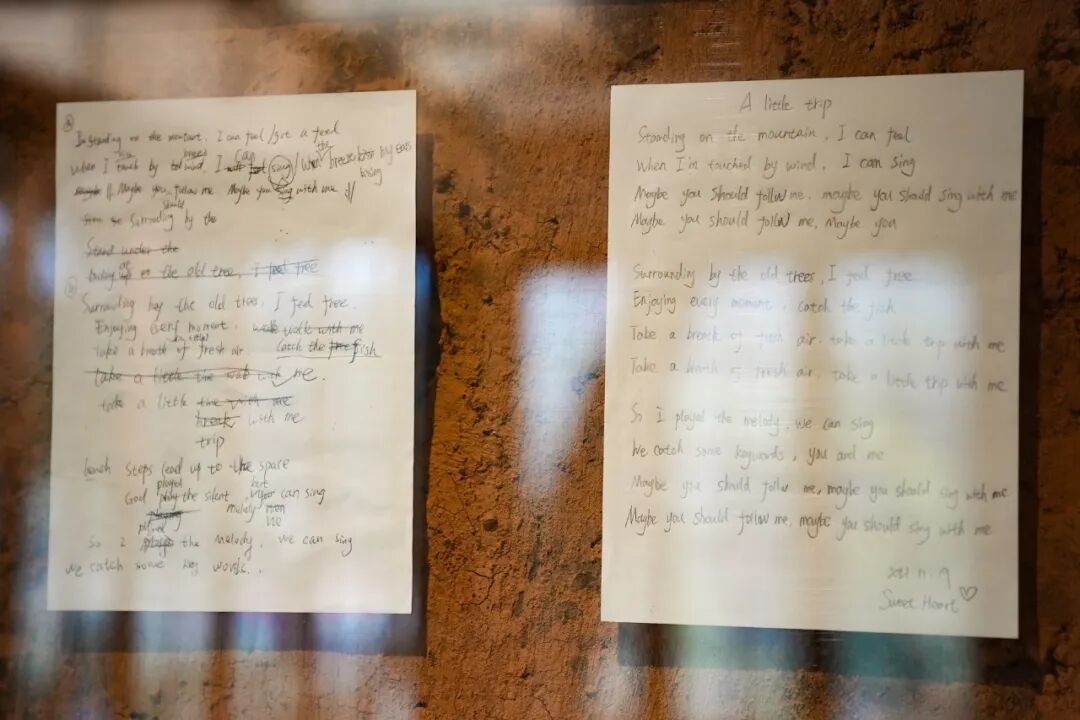 A
Im standing on the mountant, I can feel / got a feed
when I touch by wind, I can sing / when the breeze my ears
breeze
kissing
Maybe you follow me Maybe you sing with me
should
some so Surrouding by the
Stand under the
on the old tree, I feel free
B
Surrouding by the old trees, I feel free.
Enjoying every moment. walk with me
Take a breath of fresh air. catch the fish
take a little time with me.
take a little time with me
break with me
trip
bench steps lead up to the space
played but
God play the silent, can sing
melody
we
played
So I the melody, we can sing
we catch some key words..
A little trip
Standing on the mountain, I can feel
When I'm touched by wind, I can sing
Maybe you should follow me, maybe you should sing with me
Maybe you should follow me, Maybe you
Surrounding by the old trees, I feel free
Enjoying every moment, catch the fish
Take a breath of fresh air, take a little trip with me
Take a breath of fresh air, take a little trip with me
So I played the melody, we can sing
We catch some keywords, you and me
Maybe you should follow me, maybe you should sing with me
Maybe you should follow me, maybe you should sing with me
2021.11.19
Sweet Heart